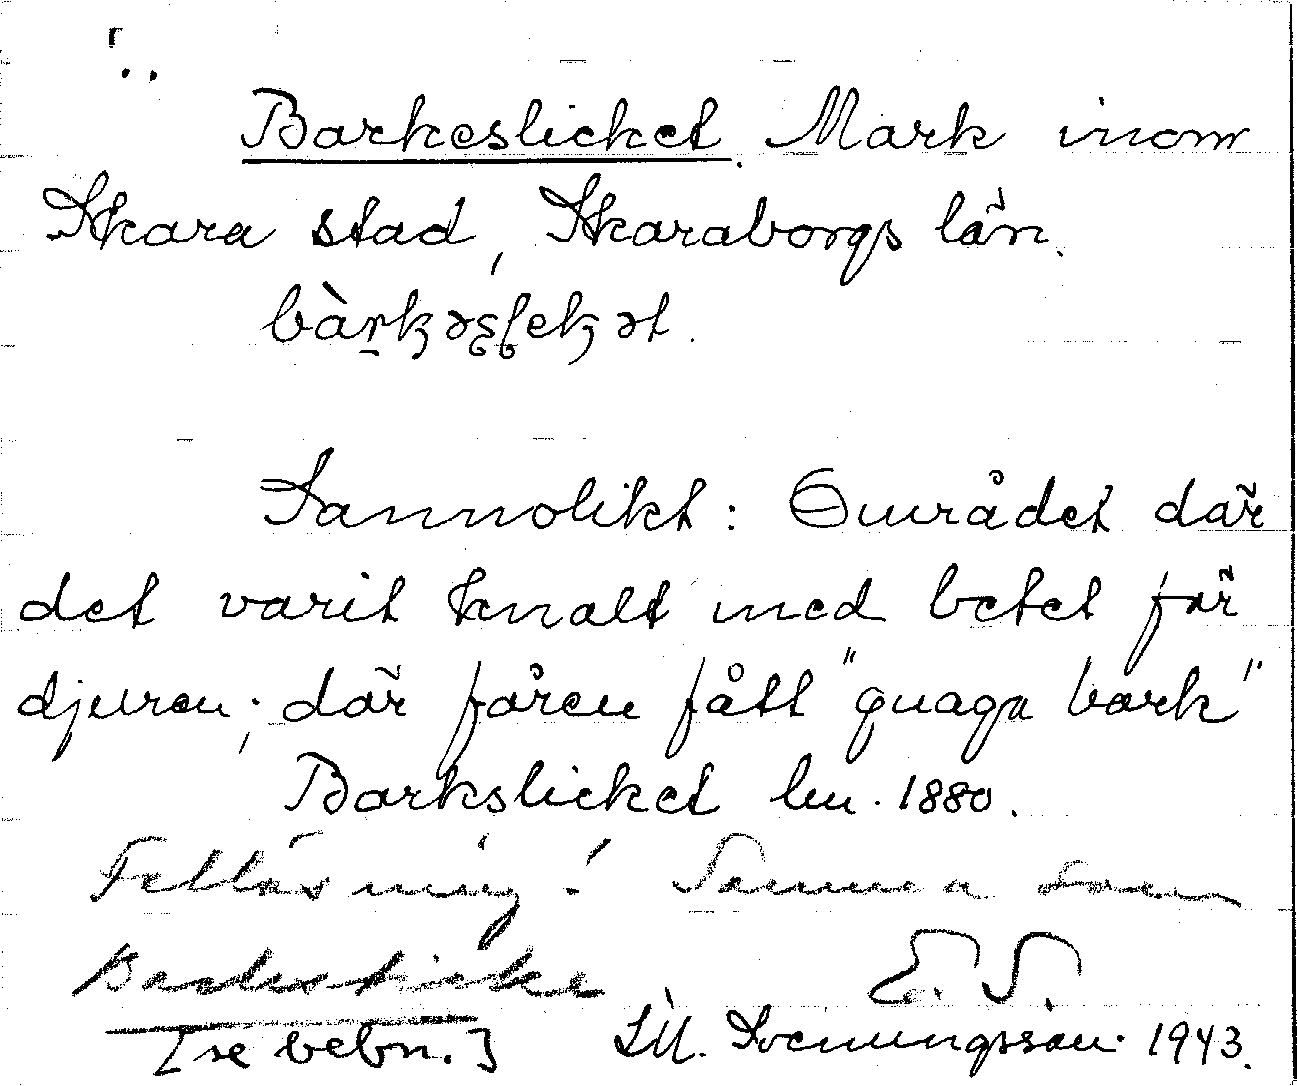 Barkeslicket. Mark inom
Skara stad, Skaraborgs län.
bàrkəslekət.
Sannolikt: Området där
det varit knalt med betet för
djuren; där fåren fått "gnaga bark"
Barkslicket lm. 1880.
Felläsning! Samma som
Barkesticke E. S.
[se bebn.] S. Svenungsson. 1943.